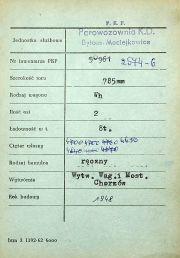 P. K. P.
Jednostka służbowa
Parowozownia K.D.
Bytom-Maciejkowice
Nr inwentarza PKP
2674-G
Szerokość toru 785mm
Rodzaj wagonu Wh
Ilość osi 2
Ładowność w t. 8t.
Ciężar własny
Rodzaj hamulca ręczny
Wytwórnia Wytw. Wag. i Most. Chorzów
Rok budowy 1948